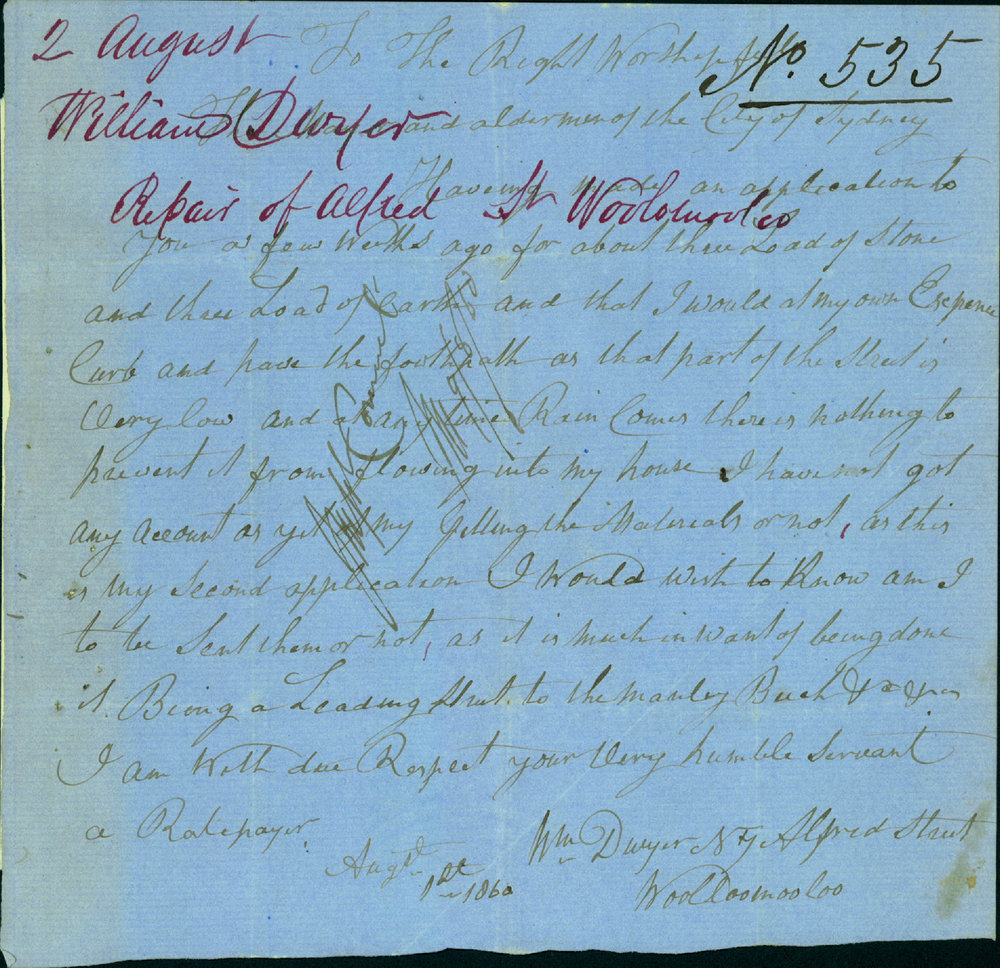 2 August
No. 535
William Dwyer
Repair of Alfred St Woolomooloo
To The Right Worshipful
The Mayor and aldermen of the City of Sydney
Haveing made an application to
You a few Weeks ago for about three Load of Stone
and three Load of earth and that I would at my own Expence
Curb and pave the footpath as that part of the Street is
Very low and at any time Rain Comes there is nothing to
prevent it from flowing into my house I have not got
any account as yet of my getting the Materials or not, as this
is my Second application I Would wish to Know am I
to be Sent them or not, as it is much in want of being done
it Being a Leading Street to the Manley Beach &c &c
I am With due Respect your Very humble Servant
a Ratepayer
Wm Dwyer No 7 Alfred Street
Woolloomooloo
Augt 1st 1860